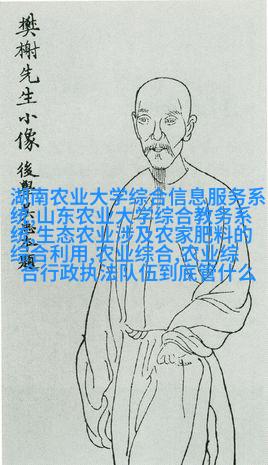 樊榭先生小像
後學
題
湖南农业大学综合信息服务系
统,山东农业大学综合教务系
统,生态农业涉及农家肥料的
综合利用,农业综合,农业综
合行政执法队伍到底管什么